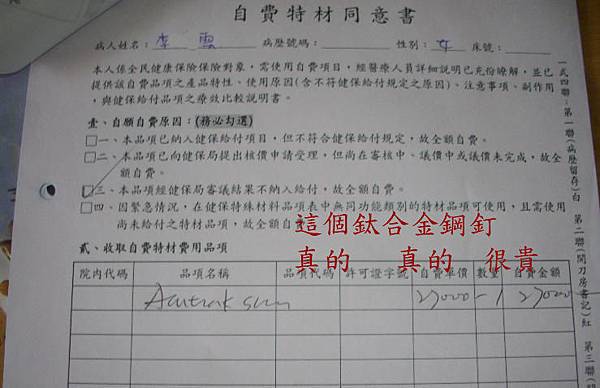 自費特材同意書
病人姓名： 李 病歷號碼： 性別：女 床號：
本人係全民健康保險保險對象，需使用自費項目，經醫療人員詳細說明已充份瞭解，並已
提供該自費品項之產品特性、使用原因(含不符健保給付規定之原因)、注意事項、副作用
，與健保給付品項之療效比較說明書。
壹、自願自費原因：(務必勾選)
□一、本品項已納入健保給付項目，但不符合健保給付規定，故全額自費。
□二、本品項已向健保局提出核價申請受理，但尚在審核中、議價中或議價未完成，故全
額自費。
□三、本品項經健保局審議結果不納入給付，故全額自費。
□四、因緊急情況，在健保特殊材料品項表中無同功能類別的特材品項可使用，且需使用
尚未給付之特材品項，故全額自費
這個鈦合金鋼釘
真的 真的 很貴
貳、收取自費特材費用品項
院內代碼 品項名稱 品項代碼 許可證字號 自費單價 數量 自費金額
Acutrak 27000 1 27000
一式四聯：第一聯(病歷留存)白 第二聯(開刀房書記)紅 第三聯